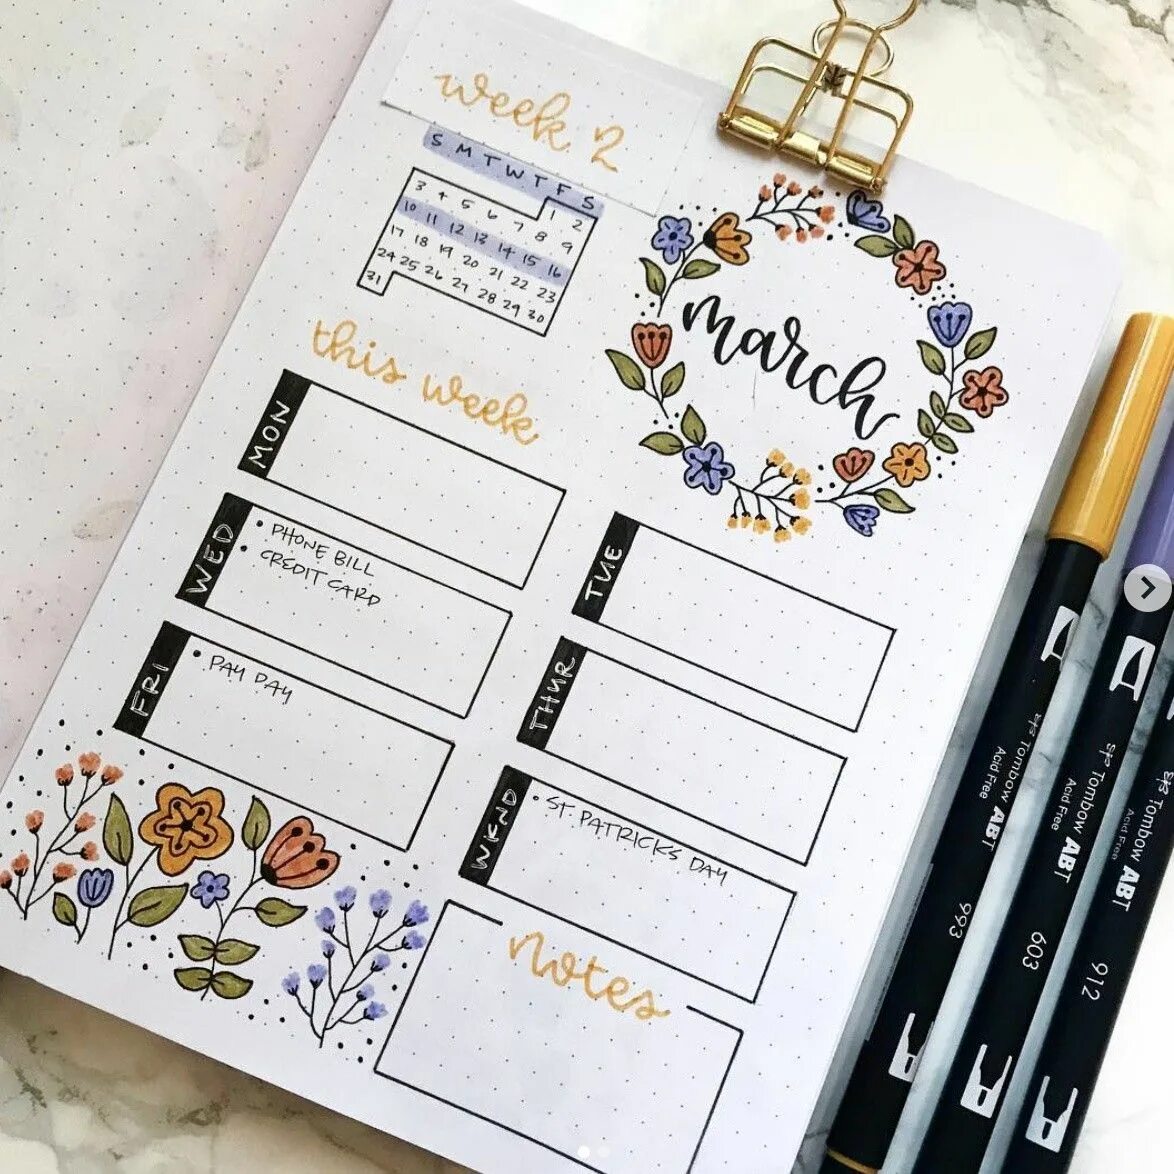 week 2
S M T W T F S
1 2
3 4 5 6 7 8 9
10 11 12 13 14 15 16
17 18 19 20 21 22 23
24 25 26 27 28 29 30
31
march
this week
MON
TUE
WED
• PHONE BILL
• CREDIT CARD
THUR
FRI
• PAY DAY
WKND
• ST. PATRICKS DAY
Notes
Tombow ABT
Acid Free
993
Tombow ABT
Acid Free
603
Tombow ABT
Acid Free
912